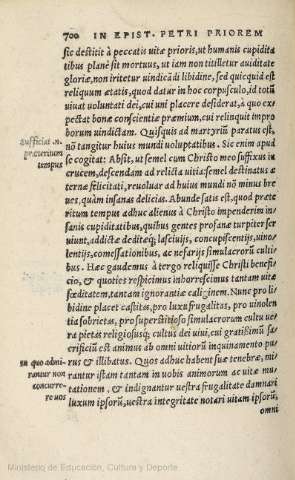 700 IN EPIST. PETRI PRIOREM
sic destitit à peccatis uitæ prioris, ut humanis cupidita
tibus planè sit mortuus, ut iam non titilletur auiditate
gloriæ, non irritetur uindicãdi libidine, sed quicquid est
reliquum ætatis, quod datur in hoc corpusculo, id totũ
uiuat uoluntati dei, cui uni placere desiderat, à quo exs
pectat bonæ conscientiæ præmium, cui relinquit impro
borum uindictam. Quisquis ad martyriũ paratus est,
nõ tangitur huius mundi uoluptatibus. Sic enim apud
Sufficiat .n.
se cogitat: Absit, ut semel cum Christo meo suffixus in
præteritum
crucem, descendam ad relicta uitia: semel destinatus æ
tempus
ternæ felicitati, reuoluar ad huius mundi nõ minus bre
ues, quàm insanas delicias. Abunde satis est, quod præte
ritum tempus adhuc alienus à Christo impenderim in
sanis cupiditatibus, quibus gentes profanæ turpiter ser
uiunt, addictæ deditæq; lasciuijs, concupiscentijs, uino
lentijs, comessationibus, ac nefarijs simulacrorũ culti
bus. Hæc gaudemus à tergo reliquisse Christi benefi
cio, & quoties respicimus inhorrescimus tantam uitæ
fœditatem, tantam ignorantiæ caliginem. Nunc pro li
bidine placet castitas, pro luxu frugalitas, pro uinolen
tia sobrietas, pro superstitioso simulacrorum cultu ue
ra pietas religiosusq; cultus dei uiui, cui gratissimũ sa
crificiũ est animus ab omni uitiorũ inquinamento pu
in quo admi-
rus & illibatus. Quos adhuc habent suæ tenebræ, mi
rantur non
rantur istam tantam in uobis animorum ac uitæ mu
concurre-
tationem, & indignantur uestra frugalitate damnari
re uos
luxum ipsorũ, uestra integritate notari uitam ipsorũ,
omni
Ministerio de Educación, Cultura y Deporte